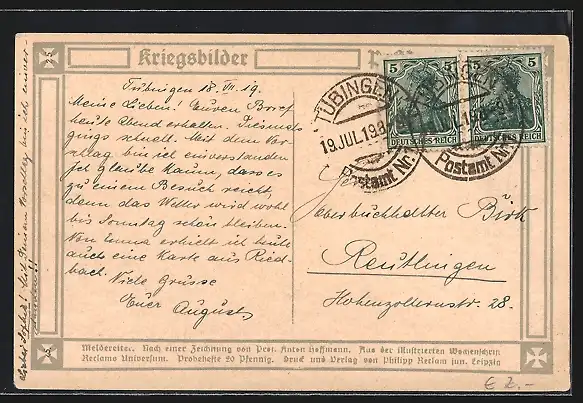 Kriegsbilder
Tübingen 18. VII. 19
Meine Lieben! Euren Brief
heute Abend erhalten. Diesmal
gings schnell. Mit dem Vor-
schlag bin ich einverstanden
Ich glaube kaum, dass es
zu einem Besuch reicht,
denn das Wetter wird wohl
bis Sonntag schön bleiben.
Von Emma erhielt ich heute
auch eine Karte aus Ried-
bach. Viele Grüsse
Euer August
Oberbuchhalter Birk
Reutlingen
Hohenzollernstr. 28.
TÜBINGEN
19.JUL.19.8
Postamt Nr.
TÜBINGEN
Postamt Nr.
5 5
DEUTSCHES REICH
5 5
DEUTSCHES REICH
Meldereiter. Nach einer Zeichnung von Prof. Anton Hoffmann. Aus der illustrierten Wochenschrift
Reclams Universum. Probehefte 20 Pfennig. Druck und Verlag von Philipp Reclam jun. Leipzig
€ 2.-